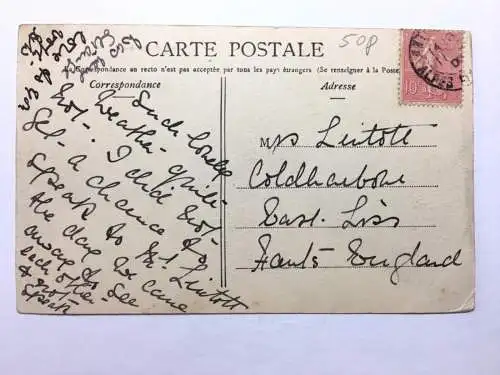 CARTE POSTALE
508
La Correspondance au recto n'est pas acceptée par tous les pays étrangers (Se renseigner à la Poste.)
Correspondance
Adresse
Such lovely
weather quite
hot. I did not
get a chance to
speak to Mr. Lintott
the day we came
away to see
each other
& not
speak
Mrs Lintott
Coldharbour
East Liss
Hants England
10
ALPES